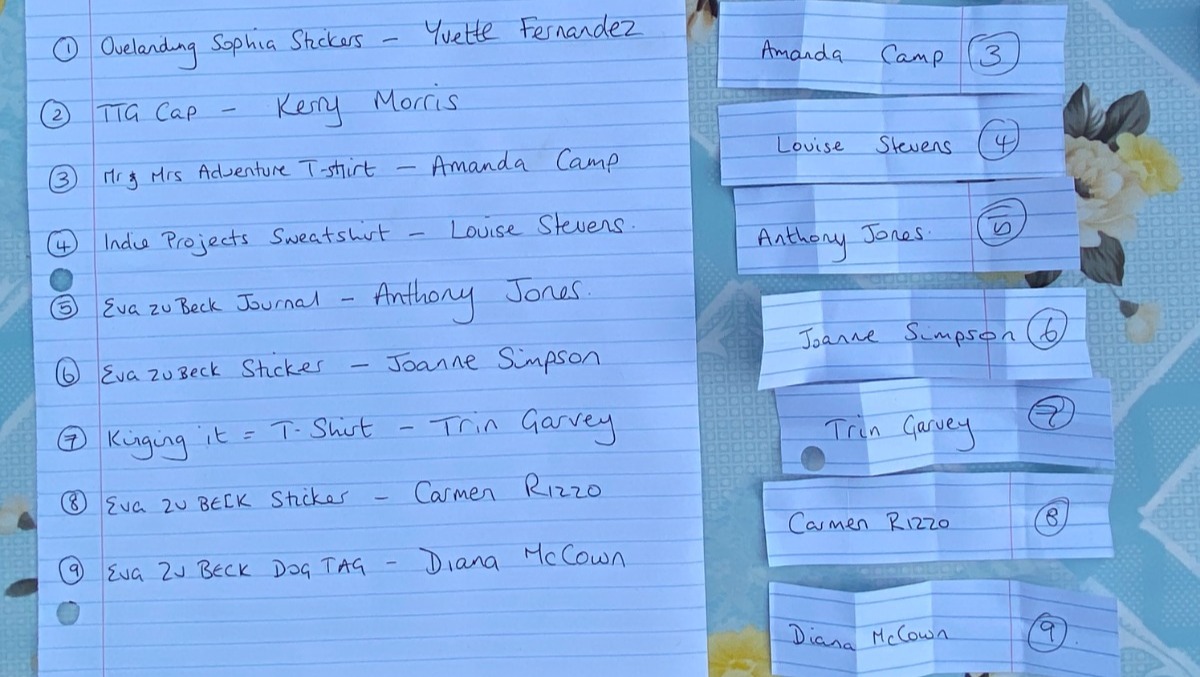 ① Ovelanding Sophia Stickers - Yvette Fernandez
② TTG Cap - Kerry Morris
③ Mr & Mrs Adventure T-shirt - Amanda Camp
④ Indie Projects Sweatshirt - Louise Stevens.
⑤ Eva zu Beck Journal - Anthony Jones.
⑥ Eva zu Beck Sticker - Joanne Simpson
⑦ Kinging it = T-Shirt - Trin Garvey
⑧ Eva zu BECK Sticker - Carmen Rizzo
⑨ Eva Zu BECK DOG TAG - Diana McCown
Amanda Camp ③
Louise Stevens ④
Anthony Jones. ⑤
Joanne Simpson ⑥
Trin Garvey ⑦
Carmen Rizzo ⑧
Diana McCown ⑨